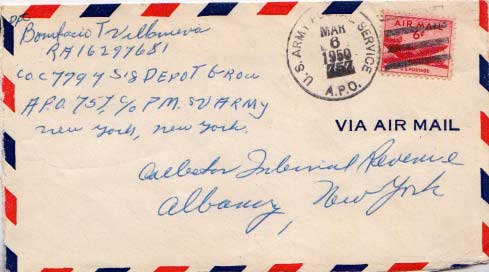 Pfc
Bonifacio T Villanueva
RA16297681
CO.C 7794 SIG DEPOT GROUP
A.P.O. 757, C/O P.M. US ARMY
New York, New York.
U.S. ARMY SERVICE
MAR
6
1950
757
A.P.O.
AIR MAIL
6¢
POSTAGE
VIA AIR MAIL
Collector Internal Revenue
Albany, New York